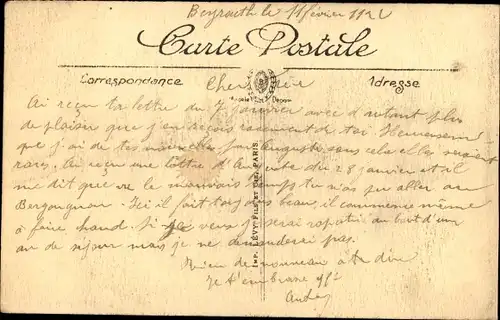 Beyrouth le 11 février 1922
Carte Postale
Correspondance
Adresse
Cher
Ai reçu ta lettre du 7 janvier avec d'autant plus
de plaisir que j'en reçois rarement de toi Heureusement
que j'ai de tes nouvelles par Auguste sans cela elles seraient
rares. Ai reçu une lettre d'Auguste du 28 janvier et il
me dit que vu le mauvais temps tu n'as pu aller au
Ici il fait toujours beau, il commence même
à faire chaud. Si je veux je serai rapatrié au bout d'un
an de séjour mais je ne demanderai pas.
Rien de nouveau à te dire
Je t'embrasse
IMP. LÉVY FILS ET CIE, PARIS